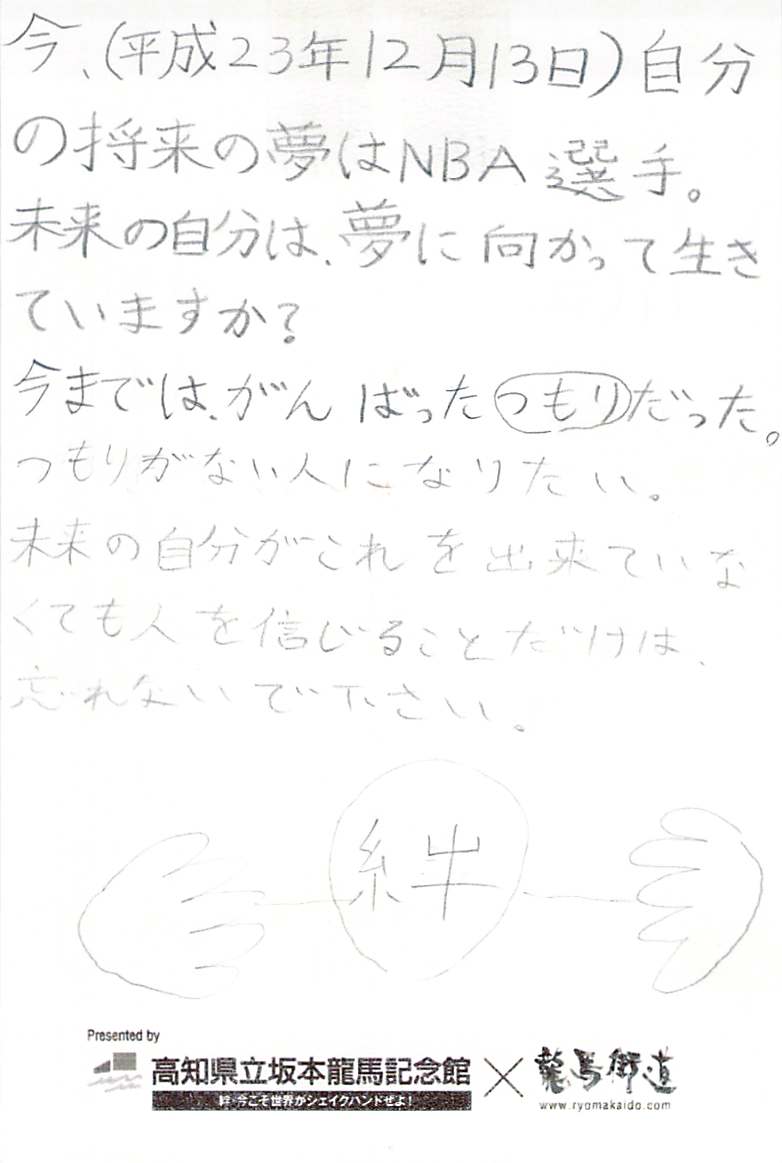 今、(平成23年12月13日)自分
の将来の夢はNBA選手。
未来の自分は、夢に向かって生き
ていますか?
今までは、がんばったつもりだった。
つもりがない人になりたい。
未来の自分がこれを出来ていな
くても人を信じることだけは、
忘れないで下さい。
絆
Presented by
高知県立坂本龍馬記念館
絆・今こそ世界がシェイクハンドぜよ!
×
龍馬街道
www.ryomakaido.com